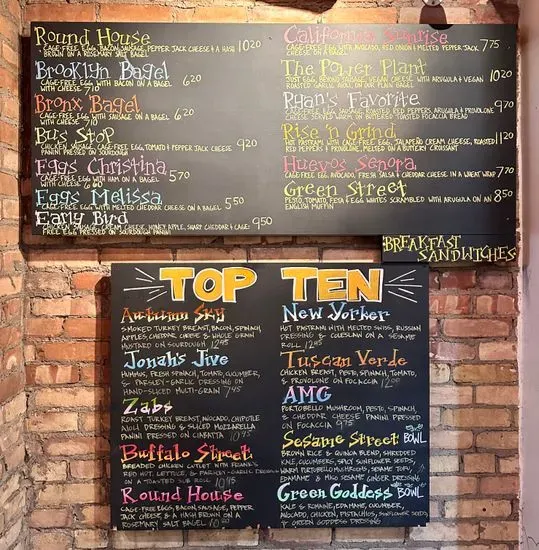 Round House
CAGE-FREE EGG, BACON, SAUSAGE, PEPPER JACK CHEESE & A HASH
BROWN ON A ROSEMARY SALT BAGEL
10.20
Brooklyn Bagel
CAGE-FREE EGG WITH BACON ON A BAGEL 6.20
WITH CHEESE 7.10
Bronx Bagel
CAGE-FREE EGG WITH SAUSAGE ON A BAGEL 6.20
WITH CHEESE 7.10
Bus Stop
CHICKEN SAUSAGE, CAGE-FREE EGG, TOMATO & PEPPER JACK CHEESE 9.20
PANINI PRESSED ON SOURDOUGH
Eggs Christina
CAGE-FREE EGG WITH HAM ON A BAGEL 5.70
WITH CHEESE 6.60
Eggs Melissa
CAGE-FREE EGG WITH MELTED CHEDDAR CHEESE ON A BAGEL 5.50
Early Bird
CHICKEN SAUSAGE, CREAM CHEESE, HONEY, APPLE, SHARP CHEDDAR & CAGE-
FREE EGG PRESSED ON SOURDOUGH PANINI 9.50
California Sunrise
CAGE-FREE EGG WITH AVOCADO, RED ONION & MELTED PEPPER JACK 7.75
The Power Plant
JUST EGG, BEYOND SAUSAGE, VEGAN CHEESE WITH ARUGULA & VEGAN
ROASTED GARLIC AIOLI, ON OUR PLAIN BAGEL
10.20
Ryan's Favorite
SAUSAGE, ROASTED RED PEPPERS, ARUGULA & PROVOLONE
CHEESE WARM ON BUTTERED TOASTED FOCACCIA BREAD
9.70
Rise 'n Grind
HOT PASTRAMI WITH CAGE-FREE EGG, JALAPEÑO CREAM CHEESE, ROASTED
RED PEPPERS & PROVOLONE, MELTED ON A BUTTERY CROISSANT
11.20
Huevos Senora
CAGE-FREE EGG, AVOCADO, FRESH SALSA & CHEDDAR CHEESE IN A WHEAT WRAP 7.70
Green Street
PESTO, TOMATO, FETA & EGG WHITES SCRAMBLED WITH ARUGULA ON AN
ENGLISH MUFFIN
8.50
BREAKFAST
SANDWICHES
TOP TEN
Autumn Sky
SMOKED TURKEY BREAST, BACON, SPINACH,
APPLES, CHEDDAR CHEESE & WHOLE GRAIN
MUSTARD ON SOURDOUGH 12.45
Jonahs Jive
HUMMUS, FRESH SPINACH, TOMATO, CUCUMBER,
& PARSLEY-GARLIC DRESSING ON
HAND-SLICED MULTI-GRAIN 7.45
Zabs
ROAST TURKEY BREAST, AVOCADO, CHIPOTLE
AIOLI DRESSING & SLICED MOZZARELLA
PANINI PRESSED ON CIABATTA 10.45
Buffalo Street
BREADED CHICKEN CUTLET WITH FRANK'S
RED HOT, LETTUCE, & PARSLEY-GARLIC DRESSING
ON A TOASTED SUB ROLL 10.45
Round House
CAGE-FREE EGGS, BACON, SAUSAGE, PEPPER
JACK CHEESE & A HASH BROWN ON A
ROSEMARY SALT BAGEL
New Yorker
HOT PASTRAMI WITH MELTED SWISS, RUSSIAN
DRESSING & COLESLAW ON A SESAME
ROLL 12.45
Tuscan Verde
CHICKEN BREAST, PESTO, SPINACH, TOMATO,
& PROVOLONE ON FOCACCIA
AMG
PORTOBELLO MUSHROOM, PESTO, SPINACH,
& CHEDDAR CHEESE PANINI PRESSED
ON FOCACCIA 9.75
Sesame Street BOWL
BROWN RICE & QUINOA BLEND, SHREDDED
KALE, CUCUMBERS, SPICY SUNFLOWER SEEDS,
WARM PORTOBELLO MUSHROOMS, SESAME TOFU,
EDAMAME & MISO SESAME GINGER DRESSING
Green Goddess BOWL
KALE & ROMAINE, EDAMAME, CUCUMBER,
AVOCADO, CHICKEN, PISTACHIOS, SUNFLOWER SEEDS
& GREEN GODDESS DRESSING